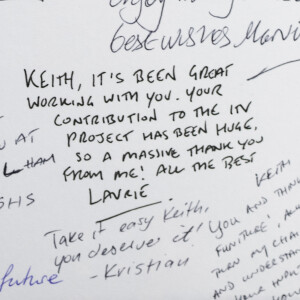 enjoy
best wishes
KEITH, IT'S BEEN GREAT
WORKING WITH YOU. YOUR
CONTRIBUTION TO THE ITV
PROJECT HAS BEEN HUGE,
SO A MASSIVE THANK YOU
FROM ME! ALL THE BEST
LAURIE
AT
HAM
GHS
Take it easy Keith,
you deserve it!
- Kristian
future
KEITH
YOU AND
FURNITURE!
TURN MY
AND UNDERSTA
YOUR